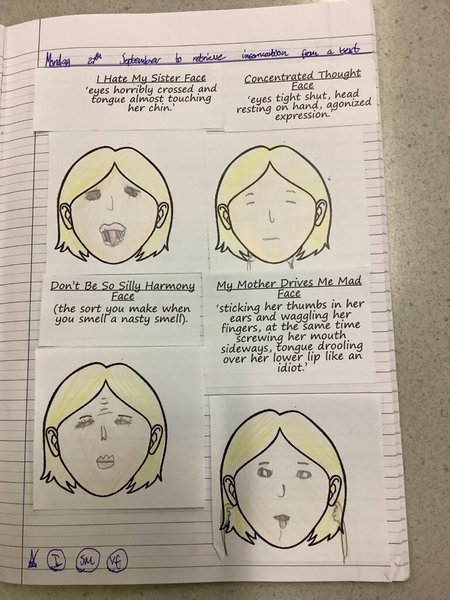 Monday 27th September to retrieve information from a text
I Hate My Sister Face
'eyes horribly crossed and
tongue almost touching
her chin.'
Concentrated Thought
Face
'eyes tight shut, head
resting on hand, agonized
expression.'
Don't Be So Silly Harmony
Face
(the sort you make when
you smell a nasty smell).
My Mother Drives Me Mad
Face
'sticking her thumbs in her
ears and waggling her
fingers, at the same time
screwing her mouth
sideways, tongue drooling
over her lower lip like an
idiot.'
I SM VF